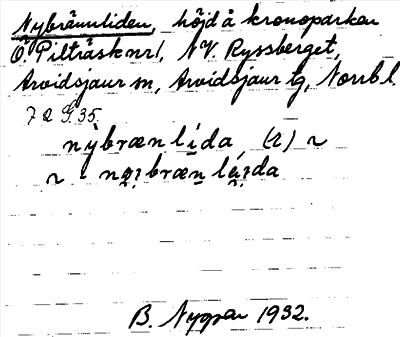 Nybrännliden, höjd å kronoparken
Ö. Pilträsk nr 1, NV. Ryssberget,
Arvidsjaur sn, Arvidsjaur tg, Norrb l.
72 G 35.
nỳbrænlída (2) ~
B. Nygren 1932.